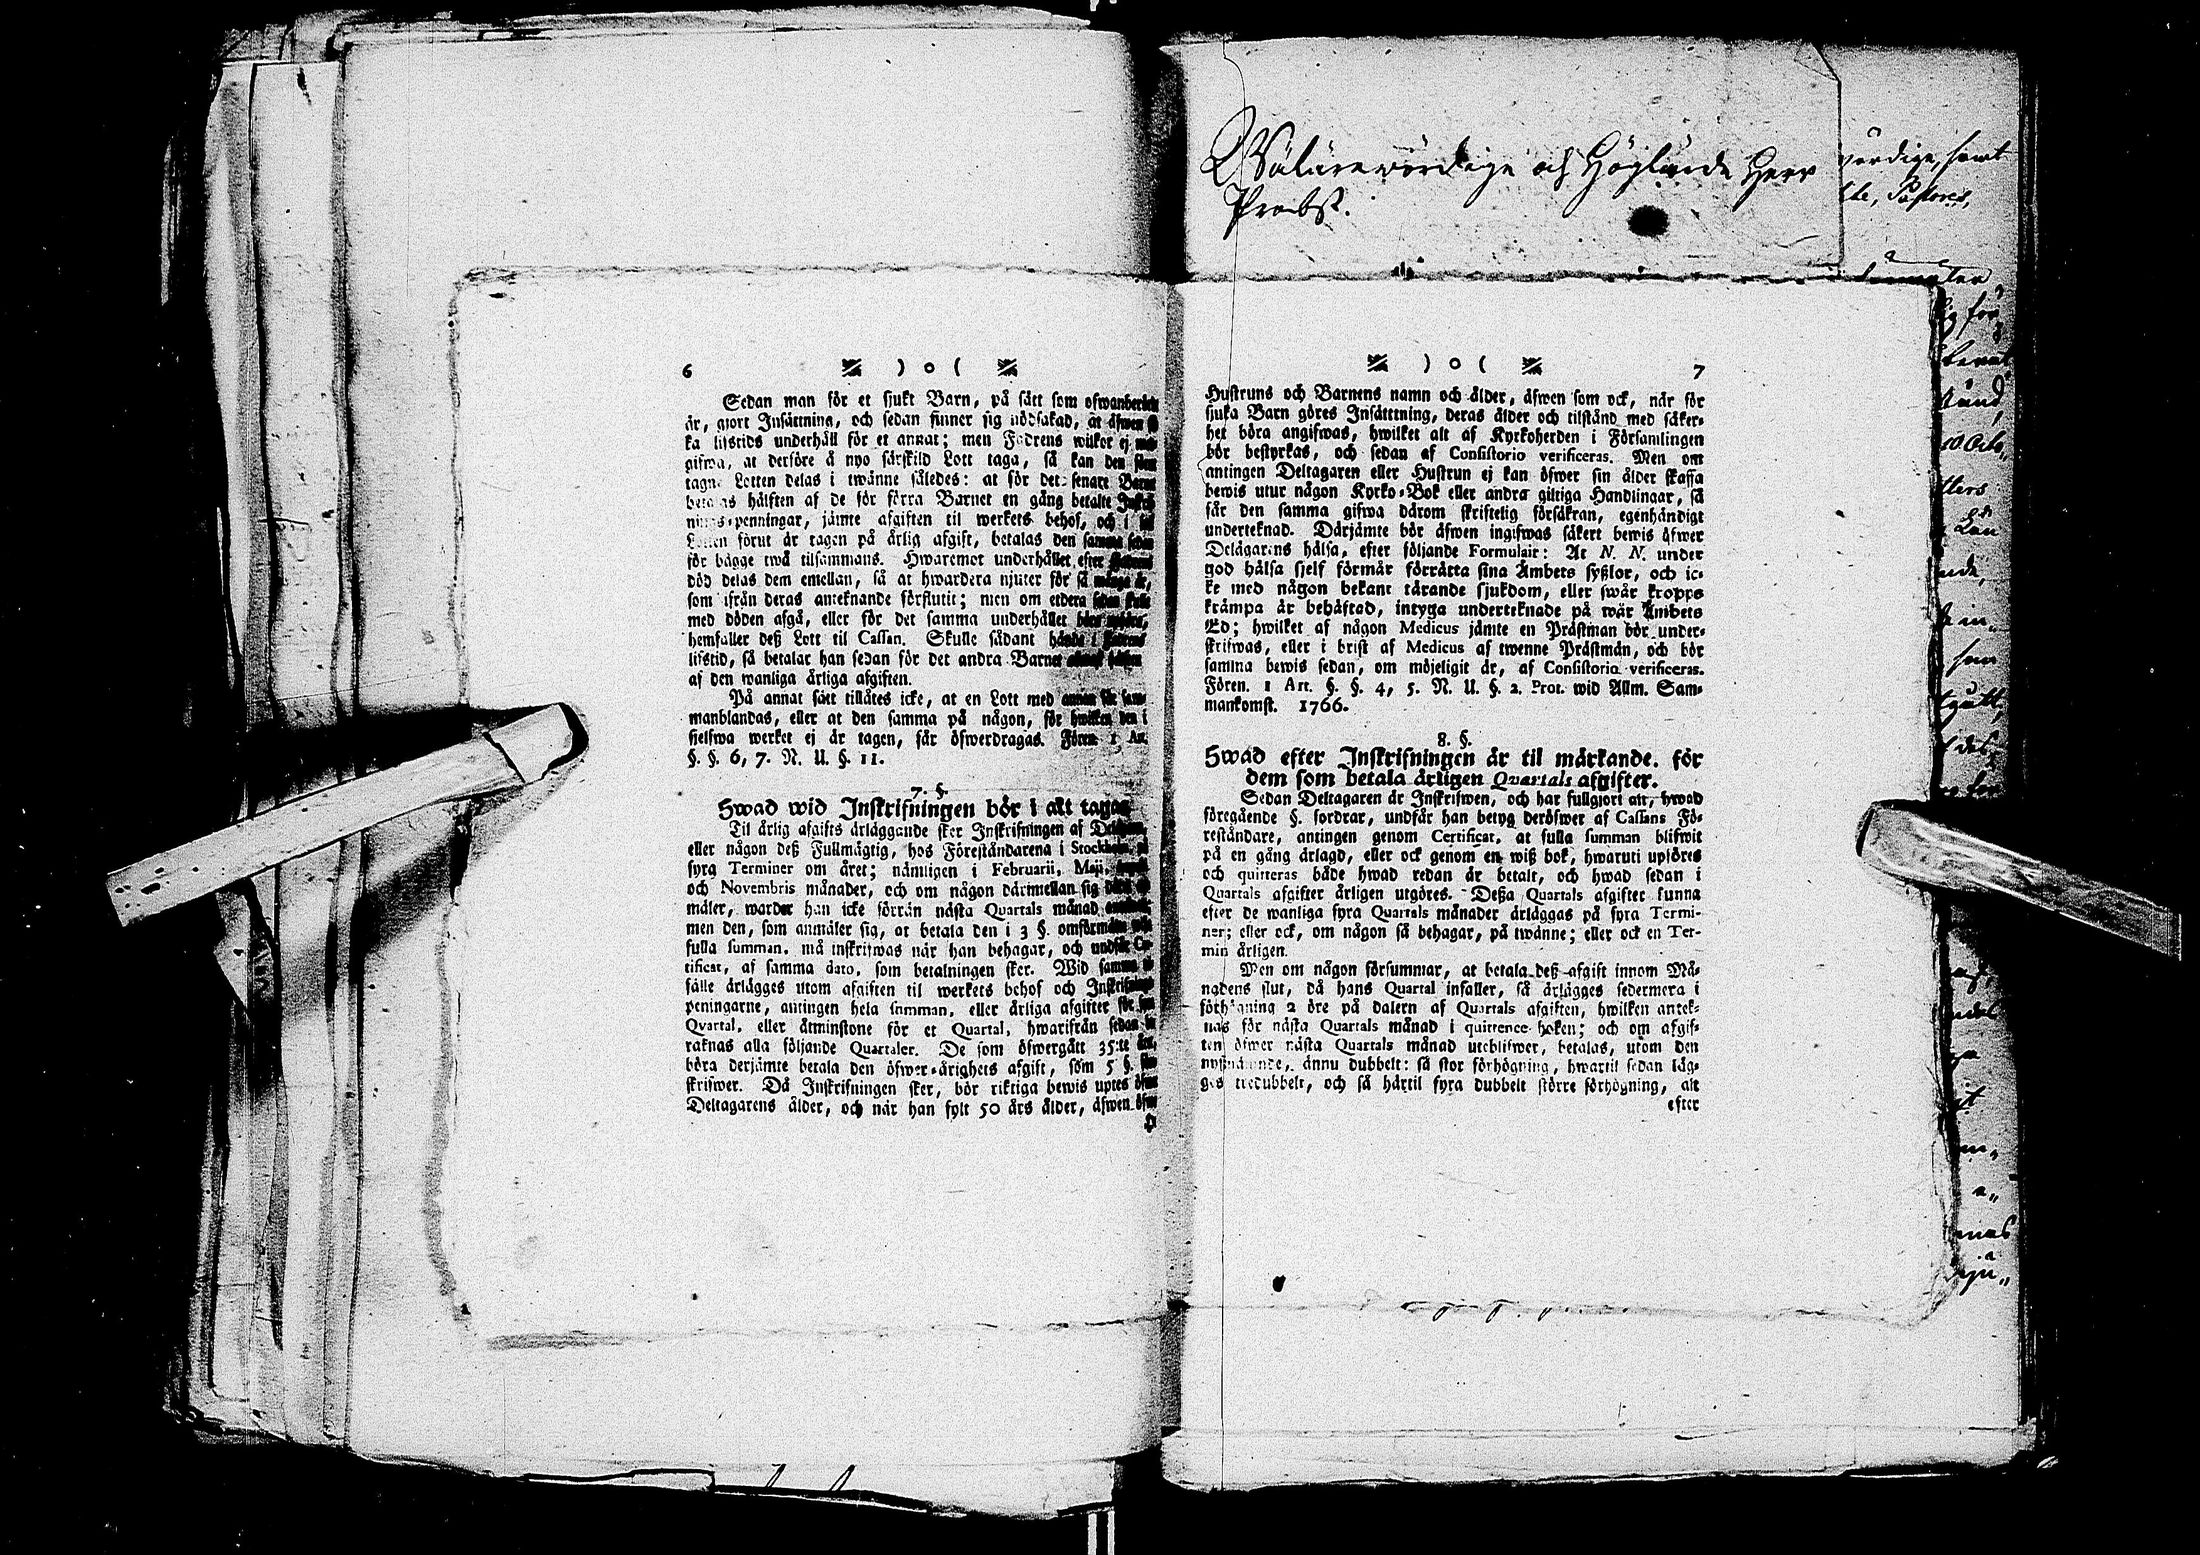 6 ) o (
Sedan man för et sjukt Barn, på sätt som ofwanberördt
är, giort Insättning, och sedan finner sig nödsakad, at äfwen
ka lifstids underhåll för et annat; men Fadrens wilkor ej
gifwa, at derföre å nyo särskild Lott taga, så kan den
tagne Lotten delas i twänne således: at för det senare Barnet
betalas hälften af de för förra Barnet en gång betalte
nings-penningar, jämte afgiften til werkets behof, och i
Lotten förut är tagen på årlig afgift, betalas den samma sedan
för bägge twå tilsammans. Hwaremot underhållet efter Fadrens
död delas dem emellan, så at hwardera njuter för så många år,
som ifrån deras anteknande förflutit; men om etdera sedan skulle
med döden afgå, eller för det samma underhållet
hemfaller deß Lott til Cassan. Skulle sådant hända i Fadrens
lifstid, så betalar han sedan för det andra Barnet
af den wanliga årliga afgiften.
På annat sätt tillåtes icke, at en Lott med annan får sam-
manblandas, eller at den samma på någon, för hwilken den i
sjelfwa werket ej är tagen, får öfwerdragas. Fören. 1 Art.
§. §. 6, 7. N. U. §. 11.
7. §.
Hwad wid Inskrifningen bör i akt tagas
Til årlig afgifts ärläggande sker Inskrifningen af
eller någon deß Fullmägtig, hos Föreståndarena i Stockholm,
fyra Terminer om året; nämligen i Februarii, Maji,
och Novembris månader, och om någon därimellan sig
mäler, warder han icke förrän nästa Quartals månad
men den, som anmäler sig, at betala den i 3 §. omförmälte
fulla summan, må inskrifwas när han behagar, och undfår Cer-
tificat, af samma dato, som betalningen sker. Wid samma
fälle ärlägges utom afgiften til werkets behof och Inskrifnings
peningarne, antingen hela summan, eller årliga afgifter för
Qvartal, eller åtminstone för et Quartal, hwarifrån sedan
räknas alla följande Quartaler. De som öfwergått 35:te
böra derjämte betala den öfwer-årighets afgift, som 5 §.
skrifwer. Då Inskrifningen sker, bör riktiga bewis uptes öfwer
Deltagarens ålder, och när han fylt 50 års ålder, äfwen öfwer
Wälärewördige och Höglärde Herr
Probst.
) o ( 7
Hustruns och Barnens namn och ålder, äfwen som ock, när för
sjuka Barn göres Insätttning, deras ålder och tilstånd med säker-
het böra angifwas, hwilket alt af Kyrkoherden i Församlingen
bör bestyrkas, och sedan af Consistorio verificeras. Men om
antingen Deltagaren eller Hustrun ej kan öfwer sin ålder skaffa
bewis utur någon Kyrko-Bok eller andra giltiga Handlingar, så
får den samma gifwa därom skriftelig försäkran, egenhändigt
underteknad. Därjämte bör äfwen ingifwas säkert bewis öfwer
Delägarens hälsa, efter följande Formulair: At N. N. under
god hälsa sjelf förmår förrätta sina Ämbets sysslor, och ic-
ke med någon bekant tärande sjukdom, eller swår kropps
krämpa är behäftad, intyga underteknade på wår Ämbets
Ed; hwilket af någon Medicus jämte en Prästman bör under-
skrifwas, eller i brist af Medicus af twenne Prästmän, och bör
samma bewis sedan, om möjeligit är, af Consistorio verificeras.
Fören. 1 Art. §. §. 4, 5. N. U. §. 2. Prot. wid Allm. Sam-
mankomst. 1766.
8. §.
Hwad efter Inskrifningen är til märkande, för
dem som betala årligen Quartals afgifter.
Sedan Deltagaren är Inskrifwen, och har fullgiort alt, hwad
föregående §. fordrar, undfår han betyg deröfwer af Cassans Fö-
reståndare, antingen genom Certificat, at fulla summan blifwit
på en gång ärlagd, eller ock genom en wiß bok, hwaruti upföres
och quitteras både hwad redan är betalt, och hwad sedan i
Quartals afgifter årligen utgöres. Deßa Quartals afgifter kunna
efter de wanliga fyra Quartals månader ärläggas på fyra Termi-
ner; eller ock, om någon så behagar, på twänne; eller ock en Ter-
min årligen.
Men om någon försummar, at betala deß afgift innom Må-
nadens slut, då hans Quartal infaller, så ärlägges sedermera i
förhögning 2 öre på dalern af Quartals afgiften, hwilken antek-
nas för nästa Quartals månad i quittence boken; och om afgif-
ten öfwer nästa Quartals månad uteblifwer, betalas, utom den
nyßnämnde, ännu dubbelt: så stor förhögning, hwartil sedan läg-
ges tredubbelt, och så härtil fyra dubbelt större förhögning, alt
efter